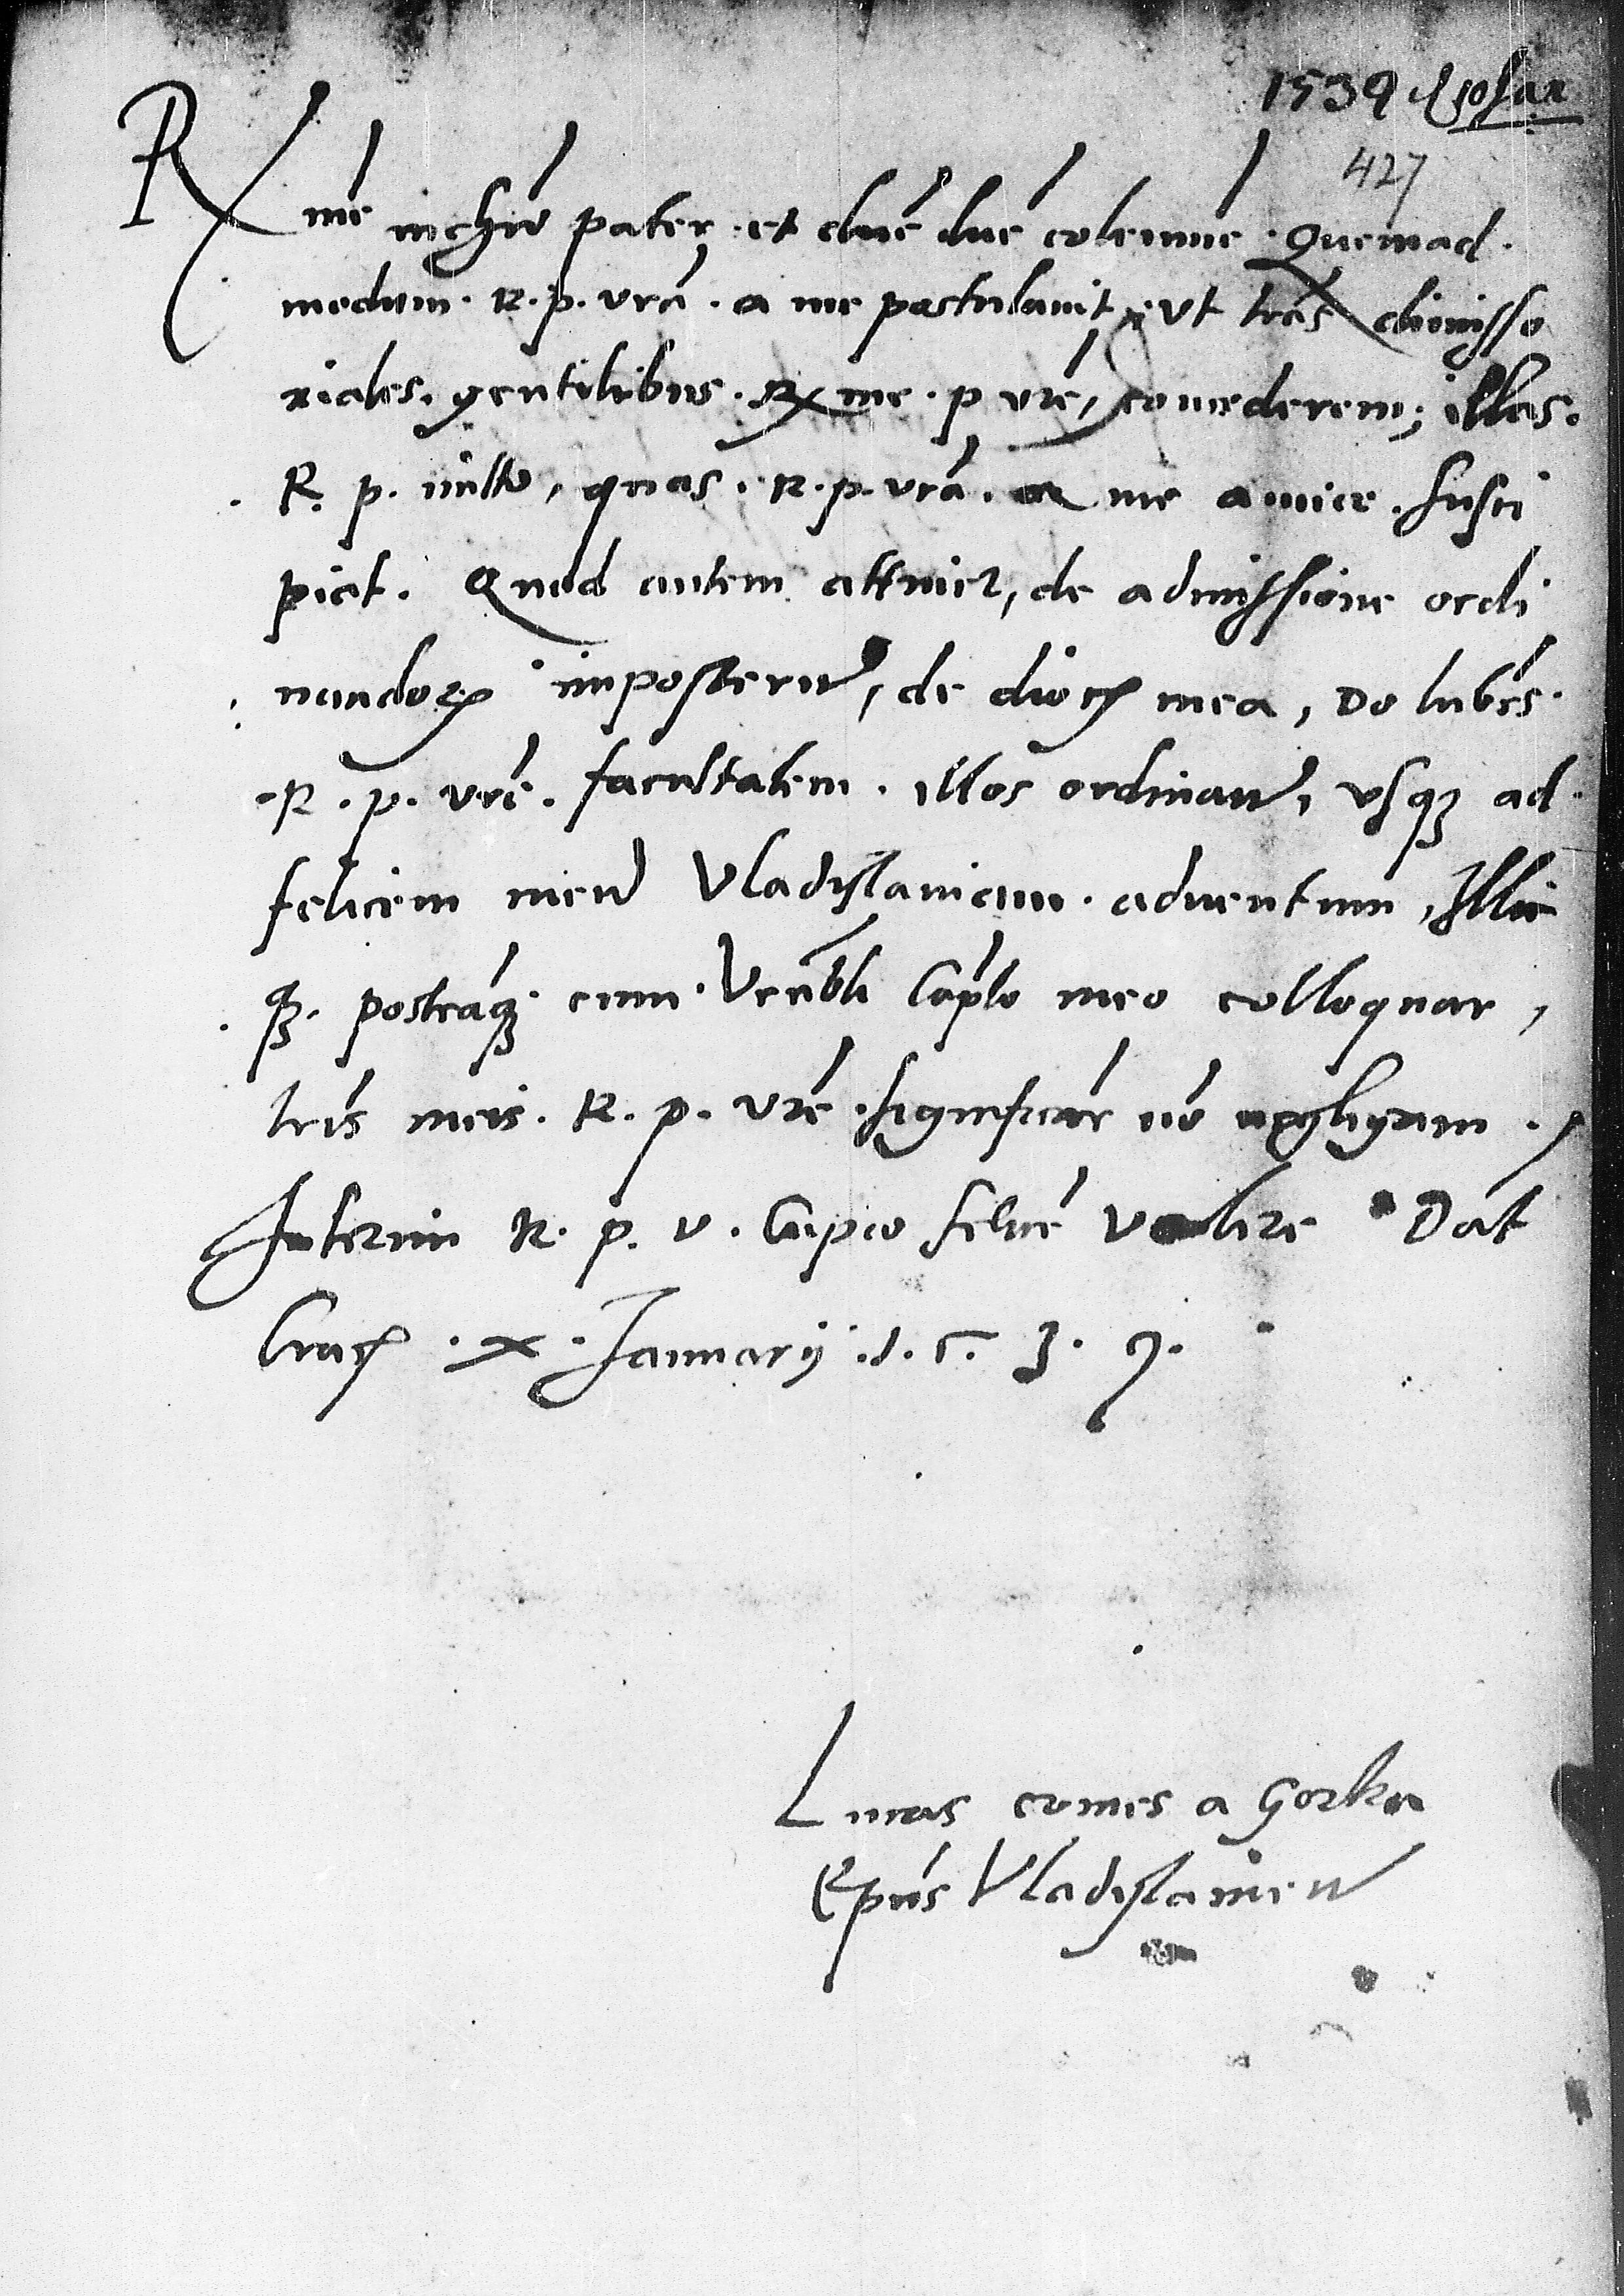 1539
427
Rme in chro pater et dne dne colenme. Quemad
modum. R. p. vra. a me postulavit, ut lras dimisso
riales. gentilibus. Rme. p vre, concederem; illas.
R. p. mitto, quas. R. p. vra. a me amice. susci
piat. Quod autem attinet, de admissione ordi
nandorum imposterum, de dioc mea, do lubens.
R. p. vre. facultatem. illos ordinandi, usq ad
felicem meum Vladislaviam. adventum, Illic
q. posteaq. cum. Venbli Caplo meo colloquar,
lris meis. R. p. vre. significare no negligam.
Interim R. p. v. Cupio felicē valere Dat
Crac. x. Januarij. 1. 5. 3. 9.
Lucas comes a Gorka
Epus Vladislavien